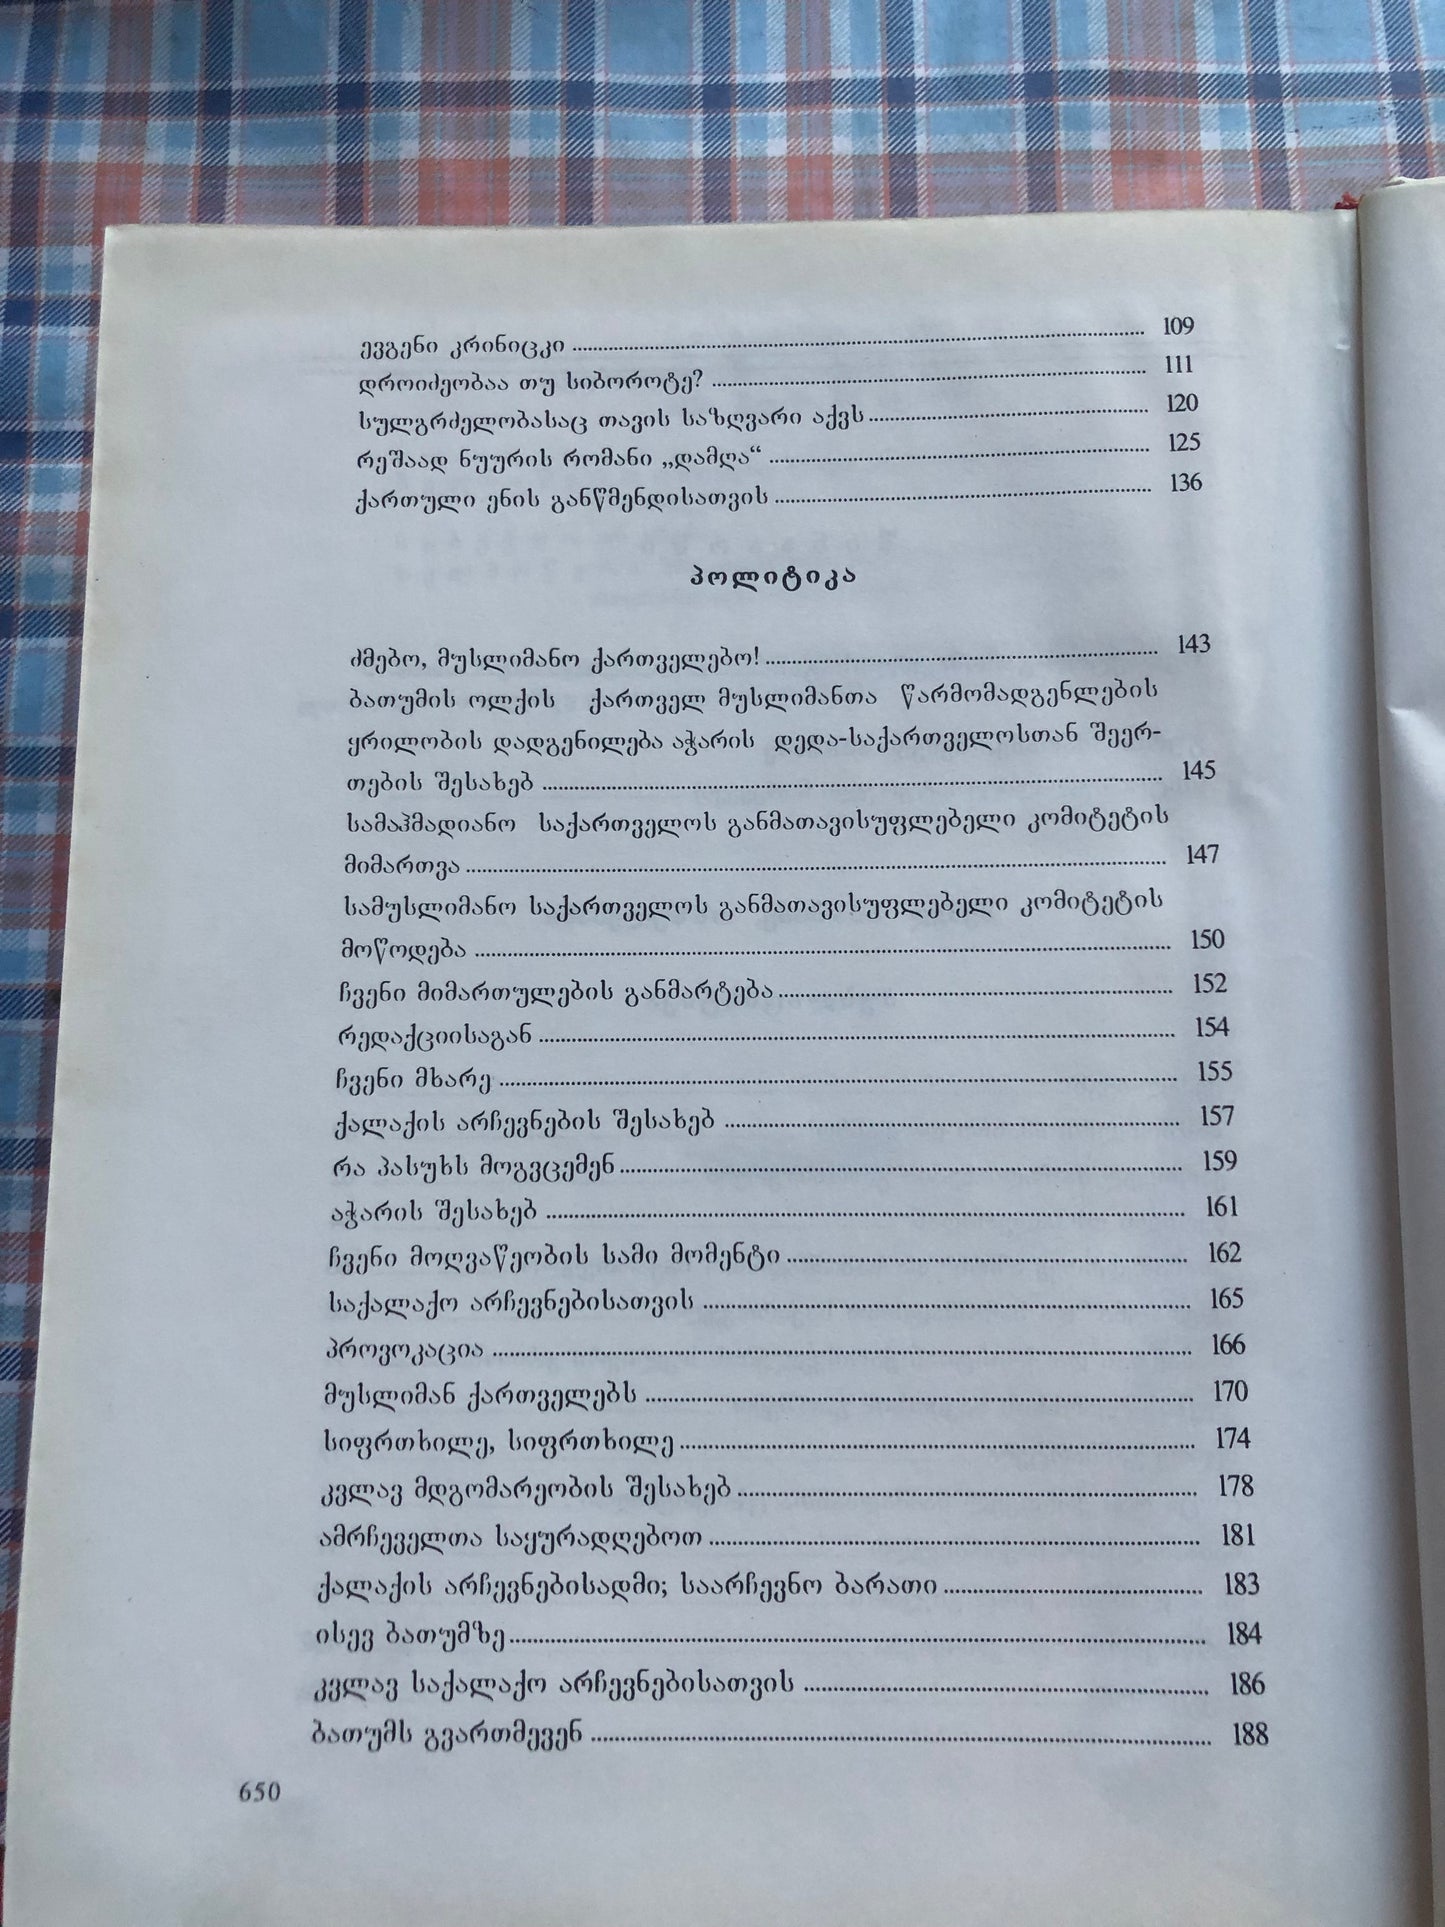 ევგენი კრინიცკი ........ 109
დროიძეობაა თუ სიბოროტე? ........ 111
სულგრძელობასაც თავის საზღვარი აქვს ........ 120
რეშაად ნუურის რომანი „დამღა“ ........ 125
ქართული ენის განწმენდისათვის ........ 136
პოლიტიკა
ძმებო, მუსლიმანო ქართველებო! ........ 143
ბათუმის ოლქის ქართველ მუსლიმანთა წარმომადგენლების
ყრილობის დადგენილება აჭარის დედა-საქართველოსთან შეერ-
თების შესახებ ........ 145
სამაჰმადიანო საქართველოს განმათავისუფლებელი კომიტეტის
მიმართვა ........ 147
სამუსლიმანო საქართველოს განმათავისუფლებელი კომიტეტის
მოწოდება ........ 150
ჩვენი მიმართულების განმარტება ........ 152
რედაქციისაგან ........ 154
ჩვენი მხარე ........ 155
ქალაქის არჩევნების შესახებ ........ 157
რა პასუხს მოგვცემენ ........ 159
აჭარის შესახებ ........ 161
ჩვენი მოღვაწეობის სამი მომენტი ........ 162
საქალაქო არჩევნებისათვის ........ 165
პროვოკაცია ........ 166
მუსლიმან ქართველებს ........ 170
სიფრთხილე, სიფრთხილე ........ 174
კვლავ მდგომარეობის შესახებ ........ 178
ამრჩეველთა საყურადღებოთ ........ 181
ქალაქის არჩევნებისადმი; საარჩევნო ბარათი ........ 183
ისევ ბათუმზე ........ 184
კვლავ საქალაქო არჩევნებისათვის ........ 186
ბათუმს გვართმევენ ........ 188
650